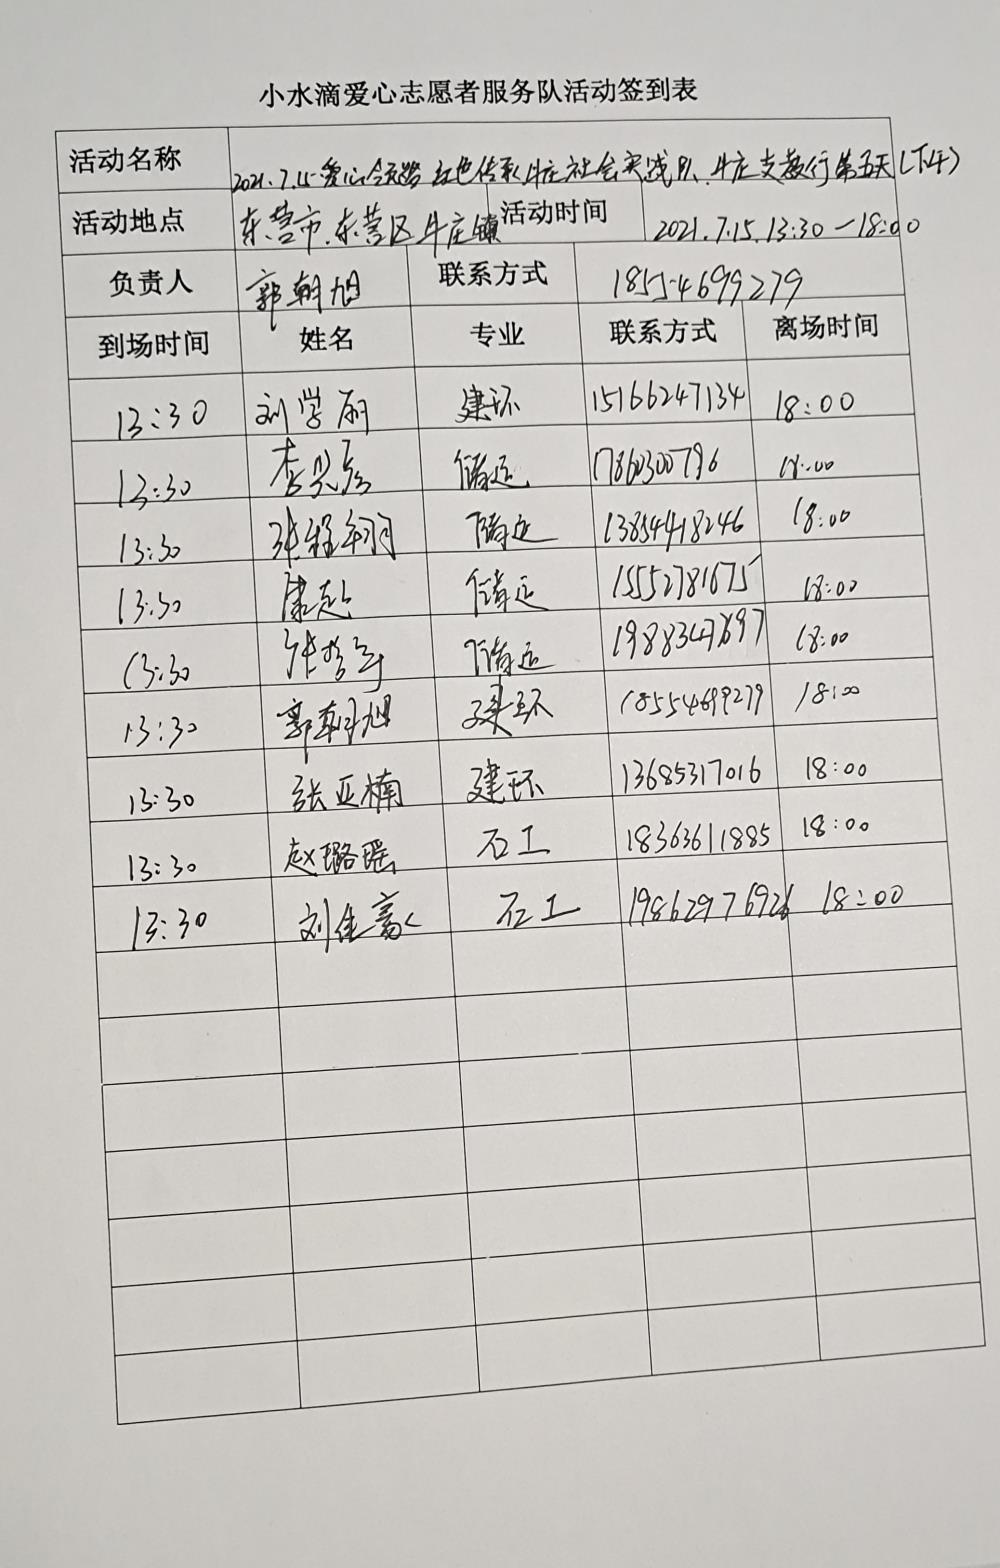 小水滴爱心志愿者服务队活动签到表
活动名称 2021.7.15 爱心 红色传承 牛庄社会实践队、牛庄支教行第五天(下午)
活动地点 东营市东营区牛庄镇 活动时间 2021.7.15.13:30—18:00
负责人 郭朝旭 联系方式 18554699279
到场时间 姓名 专业 联系方式 离场时间
13:30 刘学 建环 15166247134 18:00
13:30 李 储运 17860300796 18:00
13:30 张程翔 储运 13854418246 18:00
13:30 康赵 储运 15552781675 18:00
13:30 张 储运 18:00
13:30 郭朝旭 建环 18554699279 18:00
13:30 张亚楠 建环 13685317016 18:00
13:30 赵璐瑶 石工 18363611885 18:00
13:30 刘佳 石工 19862976926 18:00